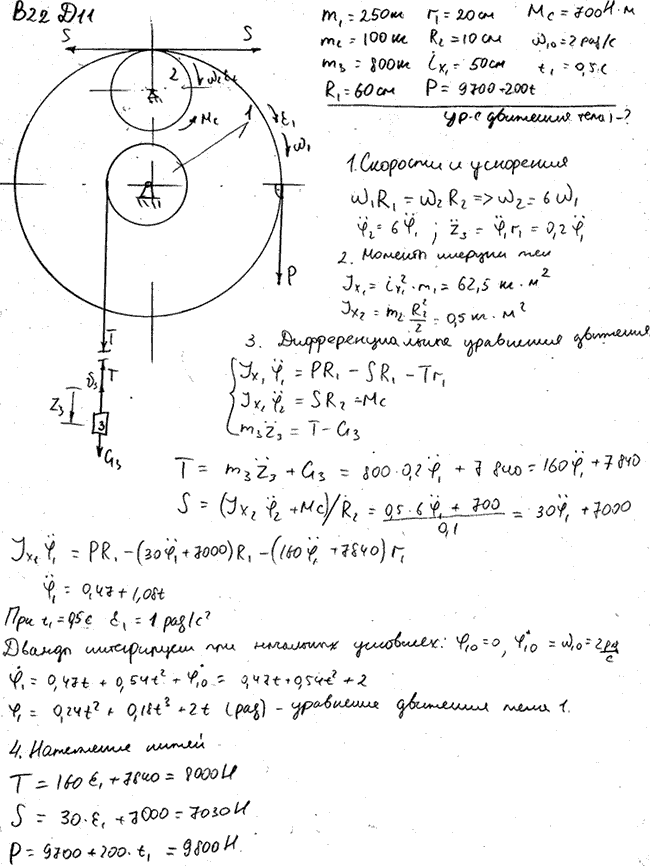 B22 D11
m₁ = 250кг r₁ = 20см Mc = 700Н·м
m₂ = 100кг R₂ = 10см ω₁₀ = 2 рад/с
m₃ = 800кг iₓ₁ = 50см t₁ = 0,5 с
R₁ = 60см P = 9700 + 200t
ур-е движения тела 1 - ?
S S
2 ω₂ ε₂
Mc
1 ε₁
ω₁
P
T
T
Z₃
3
G₃
1. Скорости и ускорения
ω₁R₁ = ω₂R₂ => ω₂ = 6ω₁
φ̈₂ = 6φ̈₁ ; z̈₃ = φ̈₁r₁ = 0,2φ̈₁
2. Момент инерции тел
Jx₁ = iₓ₁²·m₁ = 62,5 кг·м²
Jx₂ = m₂ R₂²/2 = 0,5 кг·м²
3. Дифференциальные уравнения движения
Jx₁ φ̈₁ = PR₁ - SR₁ - Tr₁
Jx₁ φ̈₂ = SR₂ - Mc
m₃z̈₃ = T - G₃
T = m₃z̈₃ + G₃ = 800·0,2φ̈₁ + 7840 = 160φ̈₁ + 7840
S = (Jx₂ φ̈₂ + Mc)/R₂ = (0,5·6φ̈₁ + 700)/0,1 = 30φ̈₁ + 7000
Jx₁ φ̈₁ = PR₁ - (30φ̈₁ + 7000)R₁ - (160φ̈₁ + 7840)r₁
φ̈₁ = 0,47 + 1,08t
При t₁ = 0,5с ε₁ = 1 рад/с²
Дважды интегрируем при начальных условиях: φ₁₀ = 0, φ̇₁₀ = ω₁₀ = 2 рад/с
φ̇₁ = 0,47t + 0,54t² + φ̇₁₀ = 0,47t + 0,54t² + 2
φ₁ = 0,24t² + 0,18t³ + 2t (рад) - уравнение движения тела 1.
4. Натяжение нитей
T = 160ε₁ + 7840 = 8000Н
S = 30·ε₁ + 7000 = 7030Н
P = 9700 + 200·t₁ = 9800Н.